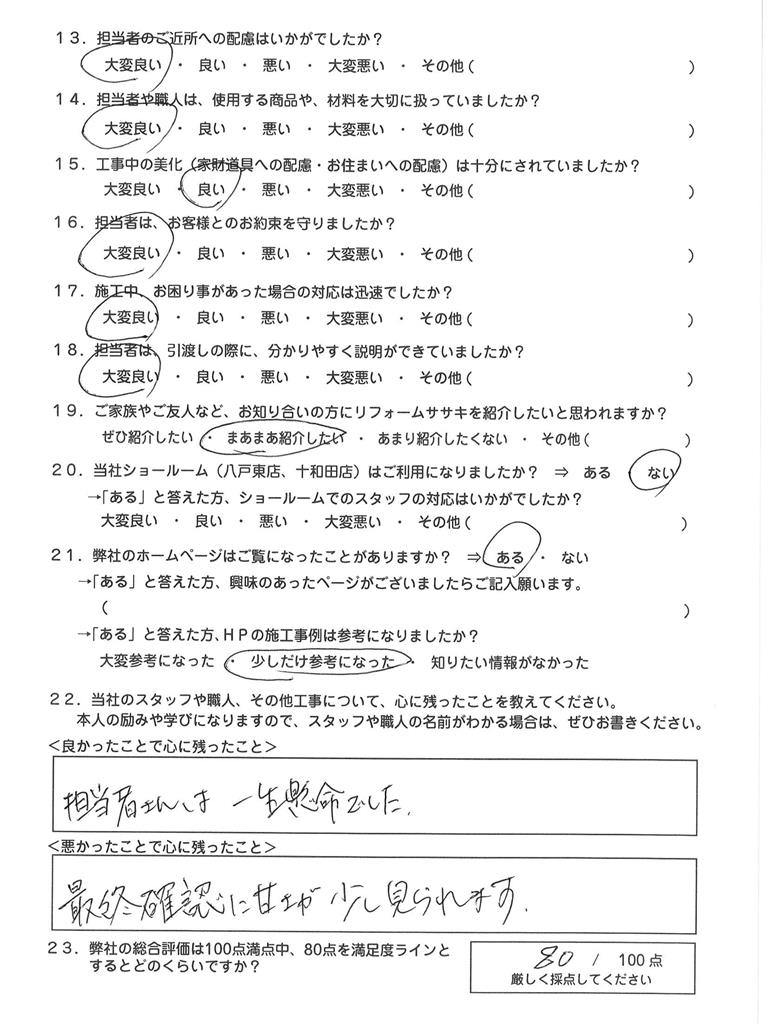 13．担当者のご近所への配慮はいかがでしたか？
大変良い ・ 良い ・ 悪い ・ 大変悪い ・ その他（ ）
14．担当者や職人は、使用する商品や、材料を大切に扱っていましたか？
大変良い ・ 良い ・ 悪い ・ 大変悪い ・ その他（ ）
15．工事中の美化（家財道具への配慮・お住まいへの配慮）は十分にされていましたか？
大変良い ・ 良い ・ 悪い ・ 大変悪い ・ その他（ ）
16．担当者は、お客様とのお約束を守りましたか？
大変良い ・ 良い ・ 悪い ・ 大変悪い ・ その他（ ）
17．施工中、お困り事があった場合の対応は迅速でしたか？
大変良い ・ 良い ・ 悪い ・ 大変悪い ・ その他（ ）
18．担当者は、引渡しの際に、分かりやすく説明ができていましたか？
大変良い ・ 良い ・ 悪い ・ 大変悪い ・ その他（ ）
19．ご家族やご友人など、お知り合いの方にリフォームササキを紹介したいと思われますか？
ぜひ紹介したい ・ まあまあ紹介したい ・ あまり紹介したくない ・ その他（ ）
20．当社ショールーム（八戸東店、十和田店）はご利用になりましたか？ ⇒ ある ・ ない
→「ある」と答えた方、ショールームでのスタッフの対応はいかがでしたか？
大変良い ・ 良い ・ 悪い ・ 大変悪い ・ その他（ ）
21．弊社のホームページはご覧になったことがありますか？ ⇒ ある ・ ない
→「ある」と答えた方、興味のあったページがございましたらご記入願います。
（ ）
→「ある」と答えた方、ＨＰの施工事例は参考になりましたか？
大変参考になった ・ 少しだけ参考になった ・ 知りたい情報がなかった
22．当社のスタッフや職人、その他工事について、心に残ったことを教えてください。
本人の励みや学びになりますので、スタッフや職人の名前がわかる場合は、ぜひお書きください。
＜良かったことで心に残ったこと＞
担当者さんは 一生懸命でした.
＜悪かったことで心に残ったこと＞
最終確認に甘さが 少し見られます.
23．弊社の総合評価は100点満点中、80点を満足度ラインと
するとどのくらいですか？
80 / 100点
厳しく採点してください